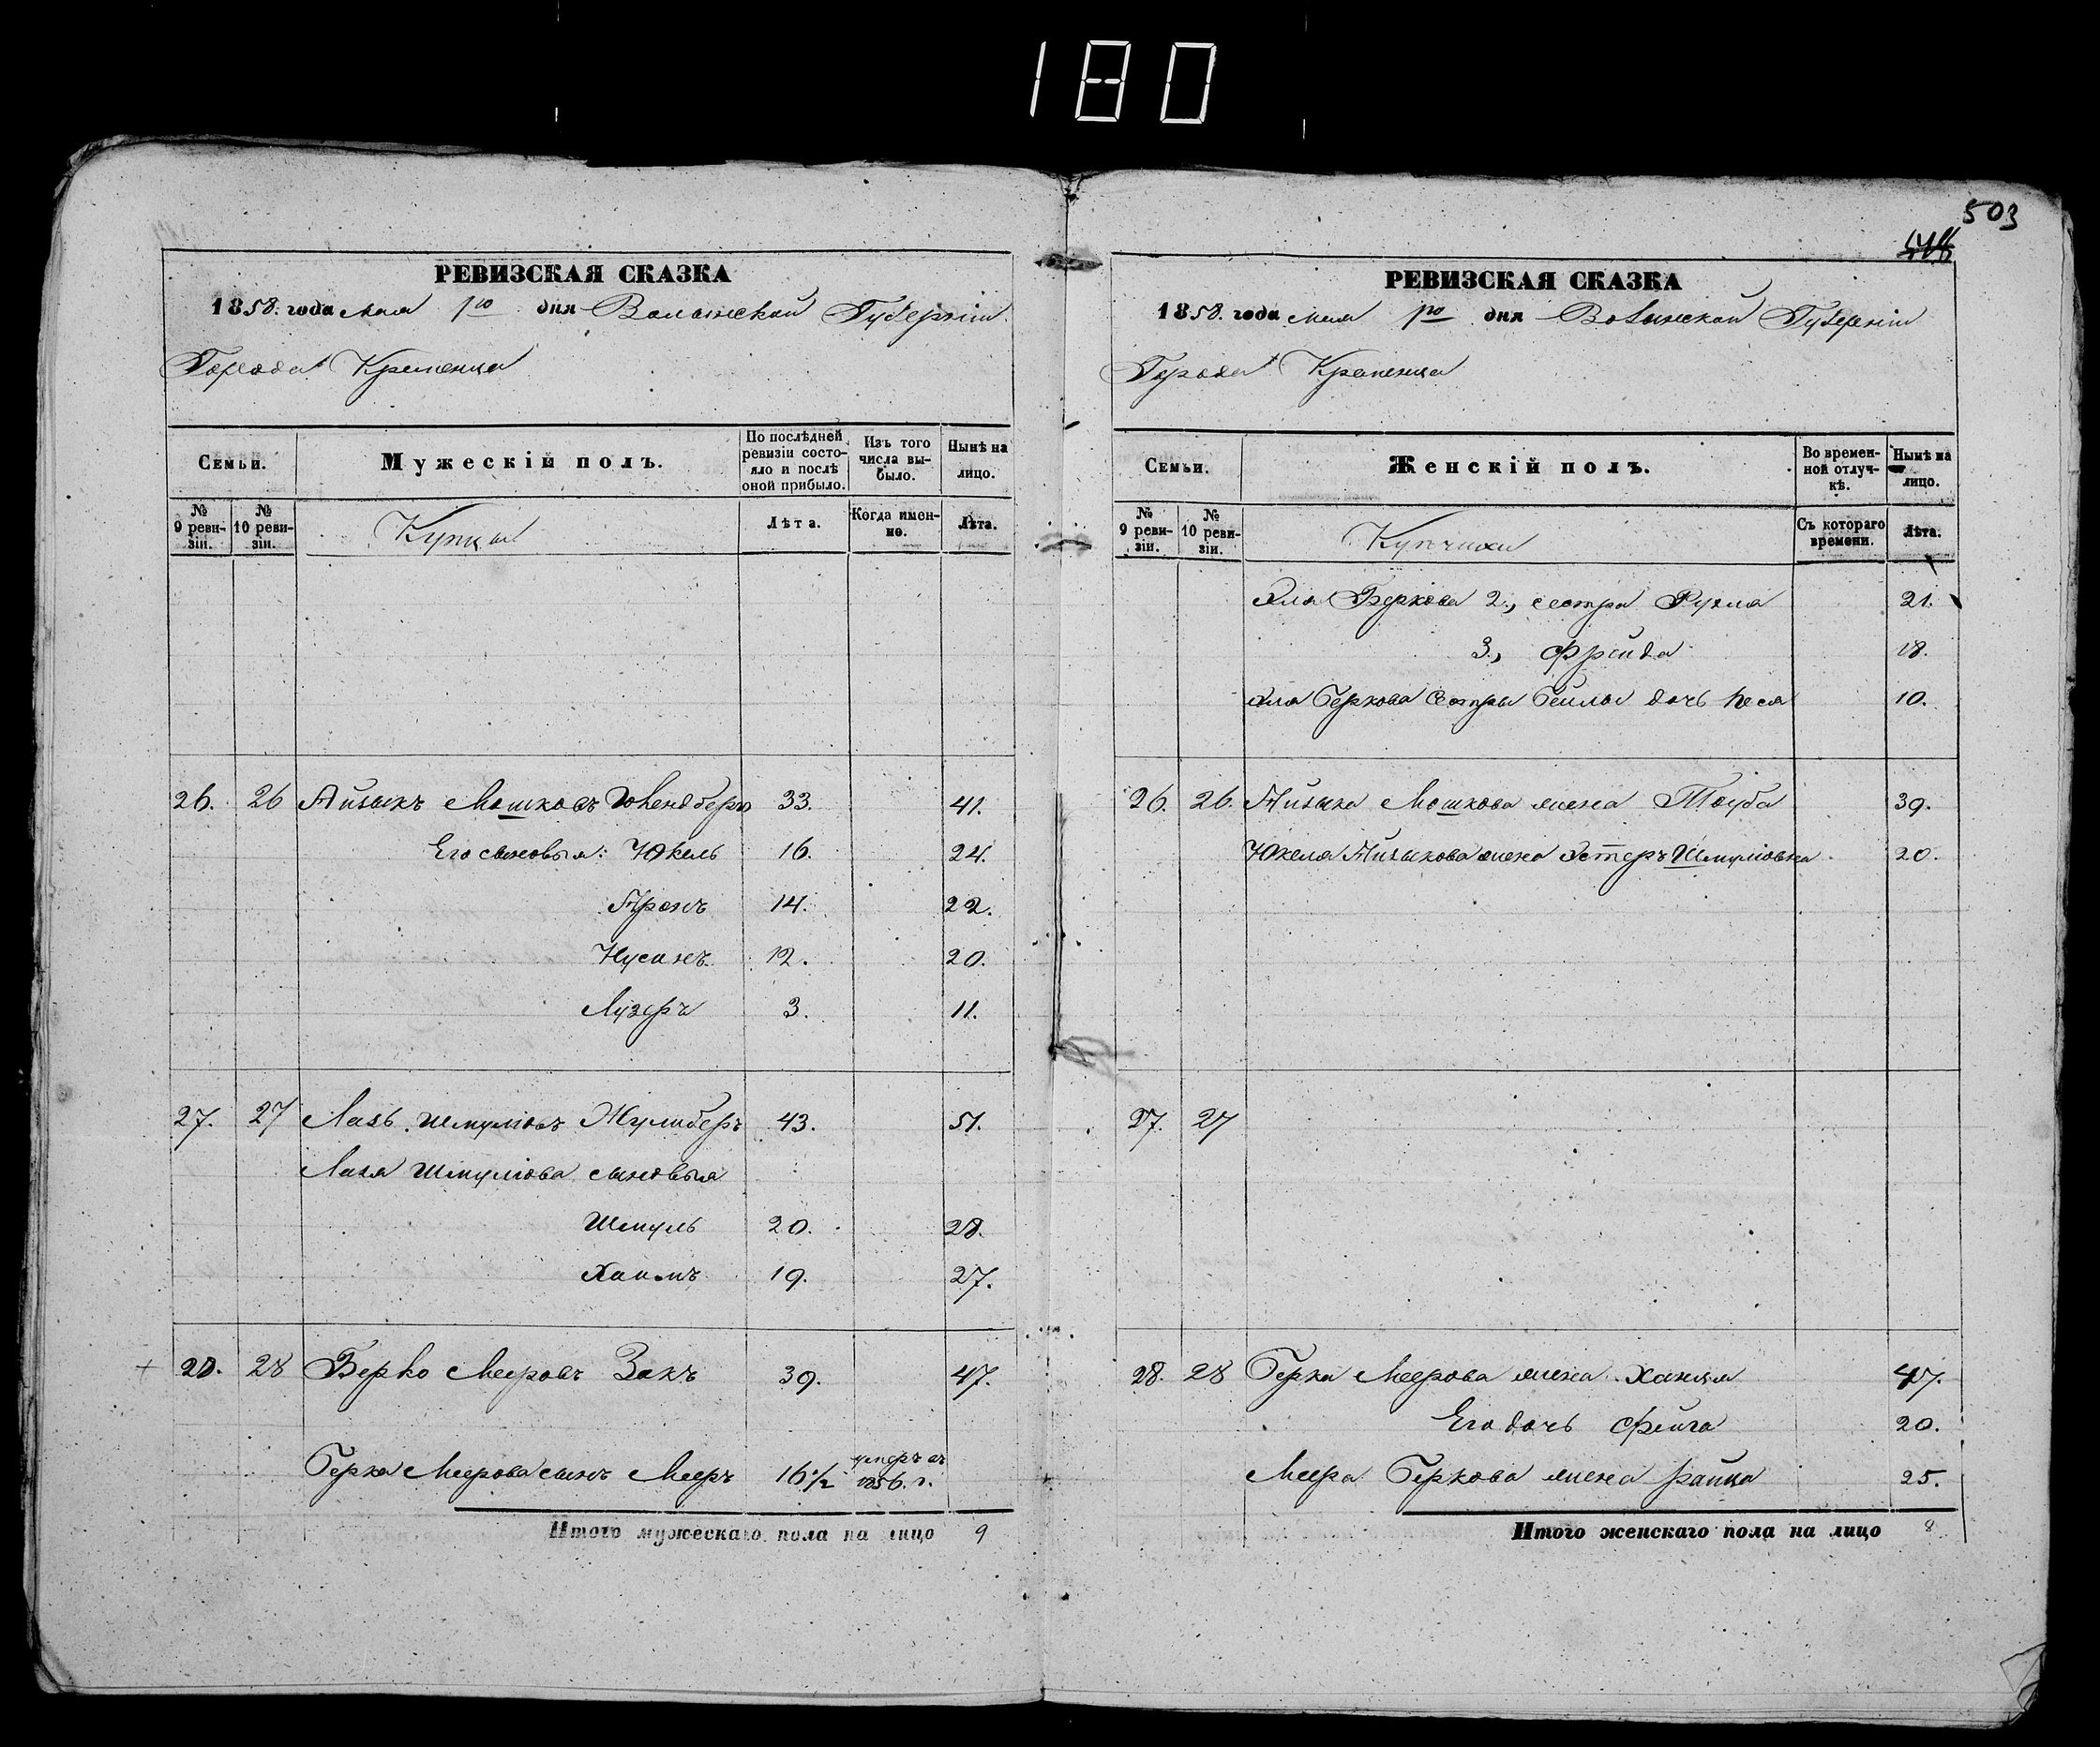 180
503
РЕВИЗСКАЯ СКАЗКА
1858. года мая 1го дня Волынской Губернии
Города Кременца
Семьи.
Мужескій полъ.
По послѣдней ревизіи состояло и послѣ оной прибыло.
Изъ того числа выбыло.
Нынѣ на лицо.
№ 9 ревизіи.
№ 10 ревизіи.
Купцы
Лѣта.
Когда именно.
Лѣта.
26. 26 Айзыкъ Мошковъ 33. 41.
Его сыновья: Юкель 16. 24.
Аронъ 14. 22.
Нусинъ 12. 20.
Лузеръ 3. 11.
27. 27 Лазь Шмуліовъ 43. 51.
Лазя Шмуліова сыновья
Шмуль 20. 28.
Хаимъ 19. 27.
28. 28 Берко Мееровъ Закъ 39. 47.
Берка Меерова сынъ Мееръ 16 1/2 умеръ въ 1856. г.
Итого мужескаго пола на лицо 9
РЕВИЗСКАЯ СКАЗКА
1858. года мая 1го дня Волынской Губернии
Города Кременца
Семьи.
Женскій полъ.
Во временной отлучкѣ.
Нынѣ на лицо.
№ 9 ревизіи.
№ 10 ревизіи.
Купчихи
Съ котораго времени.
Лѣта.
Беркова 2., сестра Рухля 21.
3., Фрейда 18.
Беркова сестры Бейлы дочь Песя 10.
26. 26. Айзыка Мошкова жена Тауба 39.
Юкеля Айзыкова жена Эстеръ Шмуліовна 20.
27. 27
28. 28 Берка Меерова жена Ханя 47.
Его дочь Фейга 20.
Меера Беркова жена Райца 25.
Итого женскаго пола на лицо 8